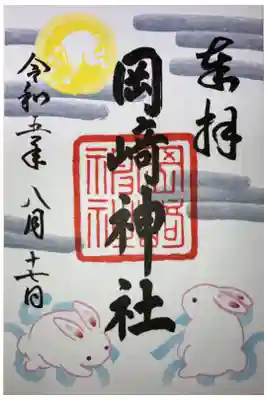 奉拝
岡崎神社
岡崎
神社
令和五年八月十七日